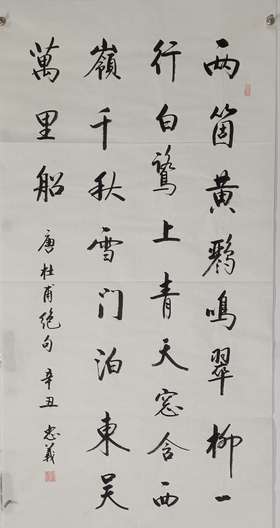 两箇黄鹂鳴翠柳一
行白鹭上青天窓含西
嶺千秋雪门泊東吴
萬里船
唐杜甫絶句辛丑忠義